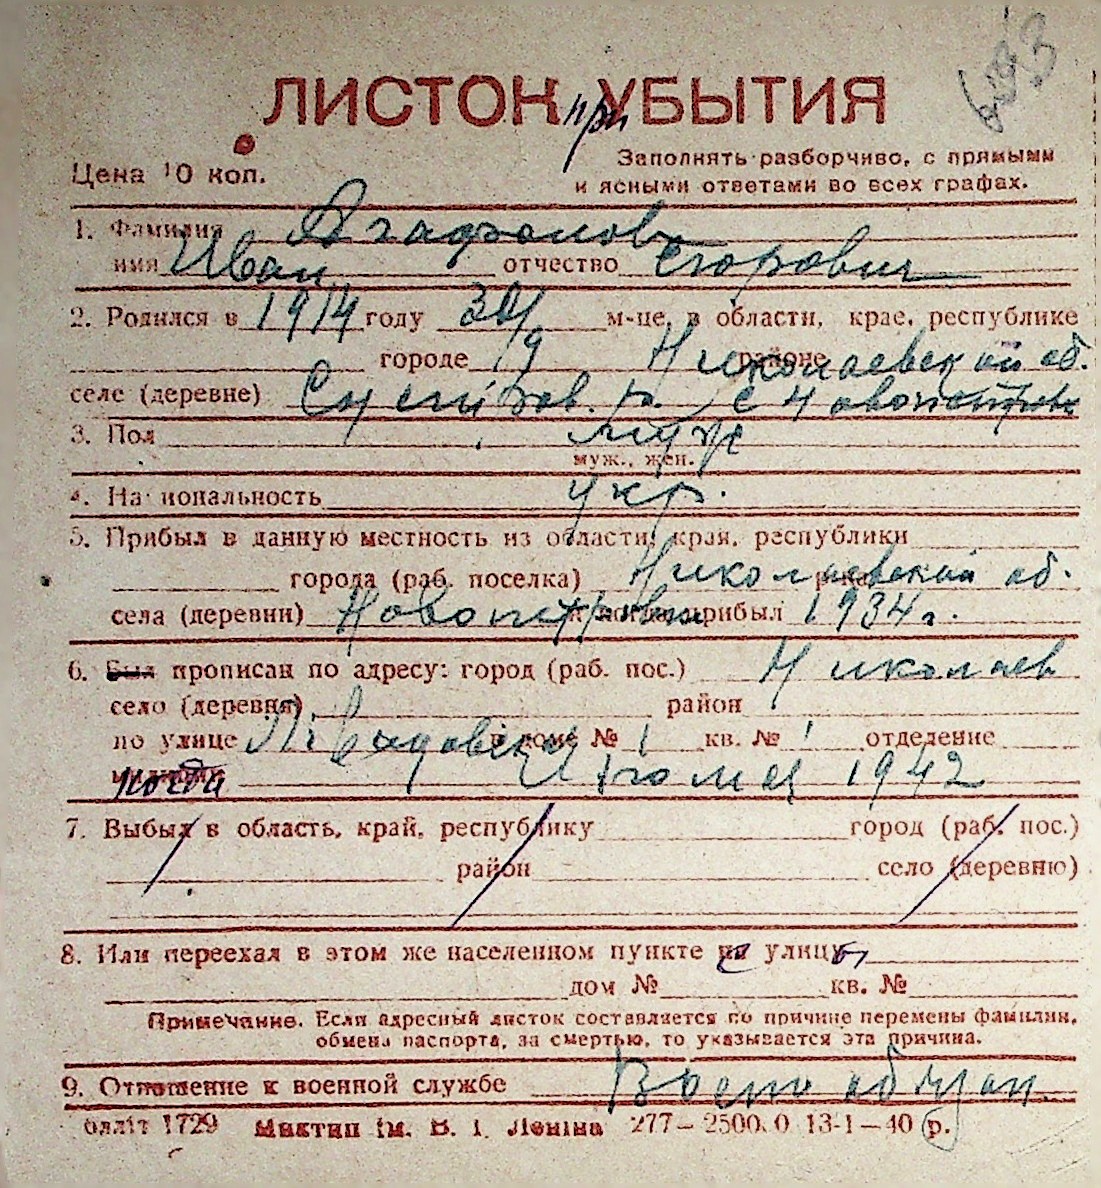 693
ЛИСТОК при УБЫТИЯ
Цена 10 коп.
Заполнять разборчиво, с прямыми
и ясными ответами во всех графах.
1. Фамилия Агафонов
имя Иван отчество Егорович
2. Родился в 1914 году 30/ м-це, в области, крае, республике
городе /9 районе Николаевский об.
селе (деревне) Снегиров. р. с Новопетровка
3. Пол муж
муж., жен.
4. Национальность укр.
5. Прибыл в данную местность из области, края, республики
города (раб. поселка) Николаевский об.
села (деревни) Новопетровки прибыл 1934 г.
6. Был прописан по адресу: город (раб. пос.) Николаев
село (деревня) район
по улице в доме № 1 кв. № 1 отделение
когда 1942
7. Выбыл в область, край, республику город (раб. пос.)
район село (деревню)
8. Или переехал в этом же населенном пункте с улицы
дом № кв. №
Примечание. Если адресный листок составляется по причине перемены фамилии,
обмена паспорта, за смертью, то указывается эта причина.
9. Отношение к военной службе Военообязан.
облліт 1729 Миктип ім. В. І. Леніна 277—2500.0 13-1—40 р.